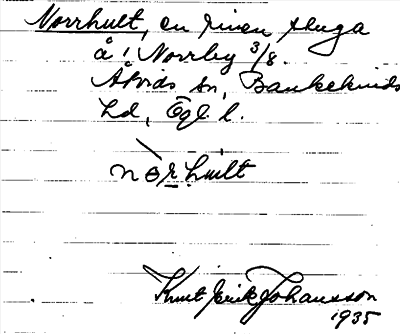 Norrhult, en riven stuga
å 1 Norrby 3/8.
Åtvids sn, Bankekinds
hd, Ögl. l.
Knut Erik Johansson
1935